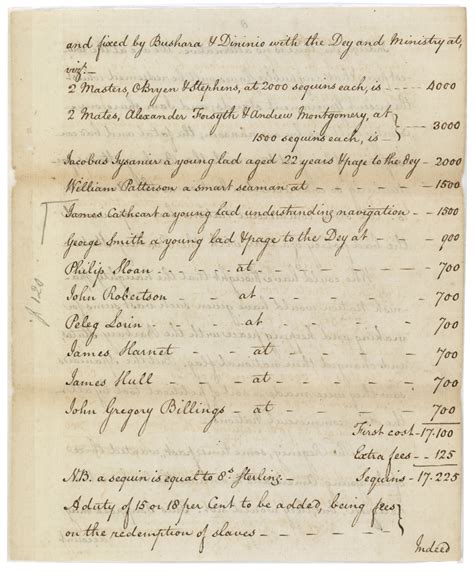 and fixed by Bushara & Dininio with the Dey and Ministry at,
vizt.
2 Masters, OBryen & Stephens, at 2000 sequins each, is - - 4000
2 Mates, Alexander Forsyth & Andrew Montgomery, at
1500 sequins each, is - } 3000
Jacobus Tysanier a young lad aged 22 years & page to the Dey - 2000
William Patterson a smart seaman at - - - - - 1500
James Cathcart a young lad understanding navigation - - 1500
George Smith a young lad & page to the Dey at - - - 900
Philip Sloan - - at - - - - - 700
John Robertson - - at - - - - - 700
Peleg Lorin - - at - - - - - 700
James Harnet - - at - - - - - 700
James Hull - - at - - - - - 700
John Gregory Billings - at - - - - - 700
First cost - 17.100
Extra fees - - 125
N.B. a sequin is equal to 8s Sterling - Sequins - 17.225
A duty of 15 or 18 per Cent to be added, being fees
on the redemption of slaves - - - - }
Indeed